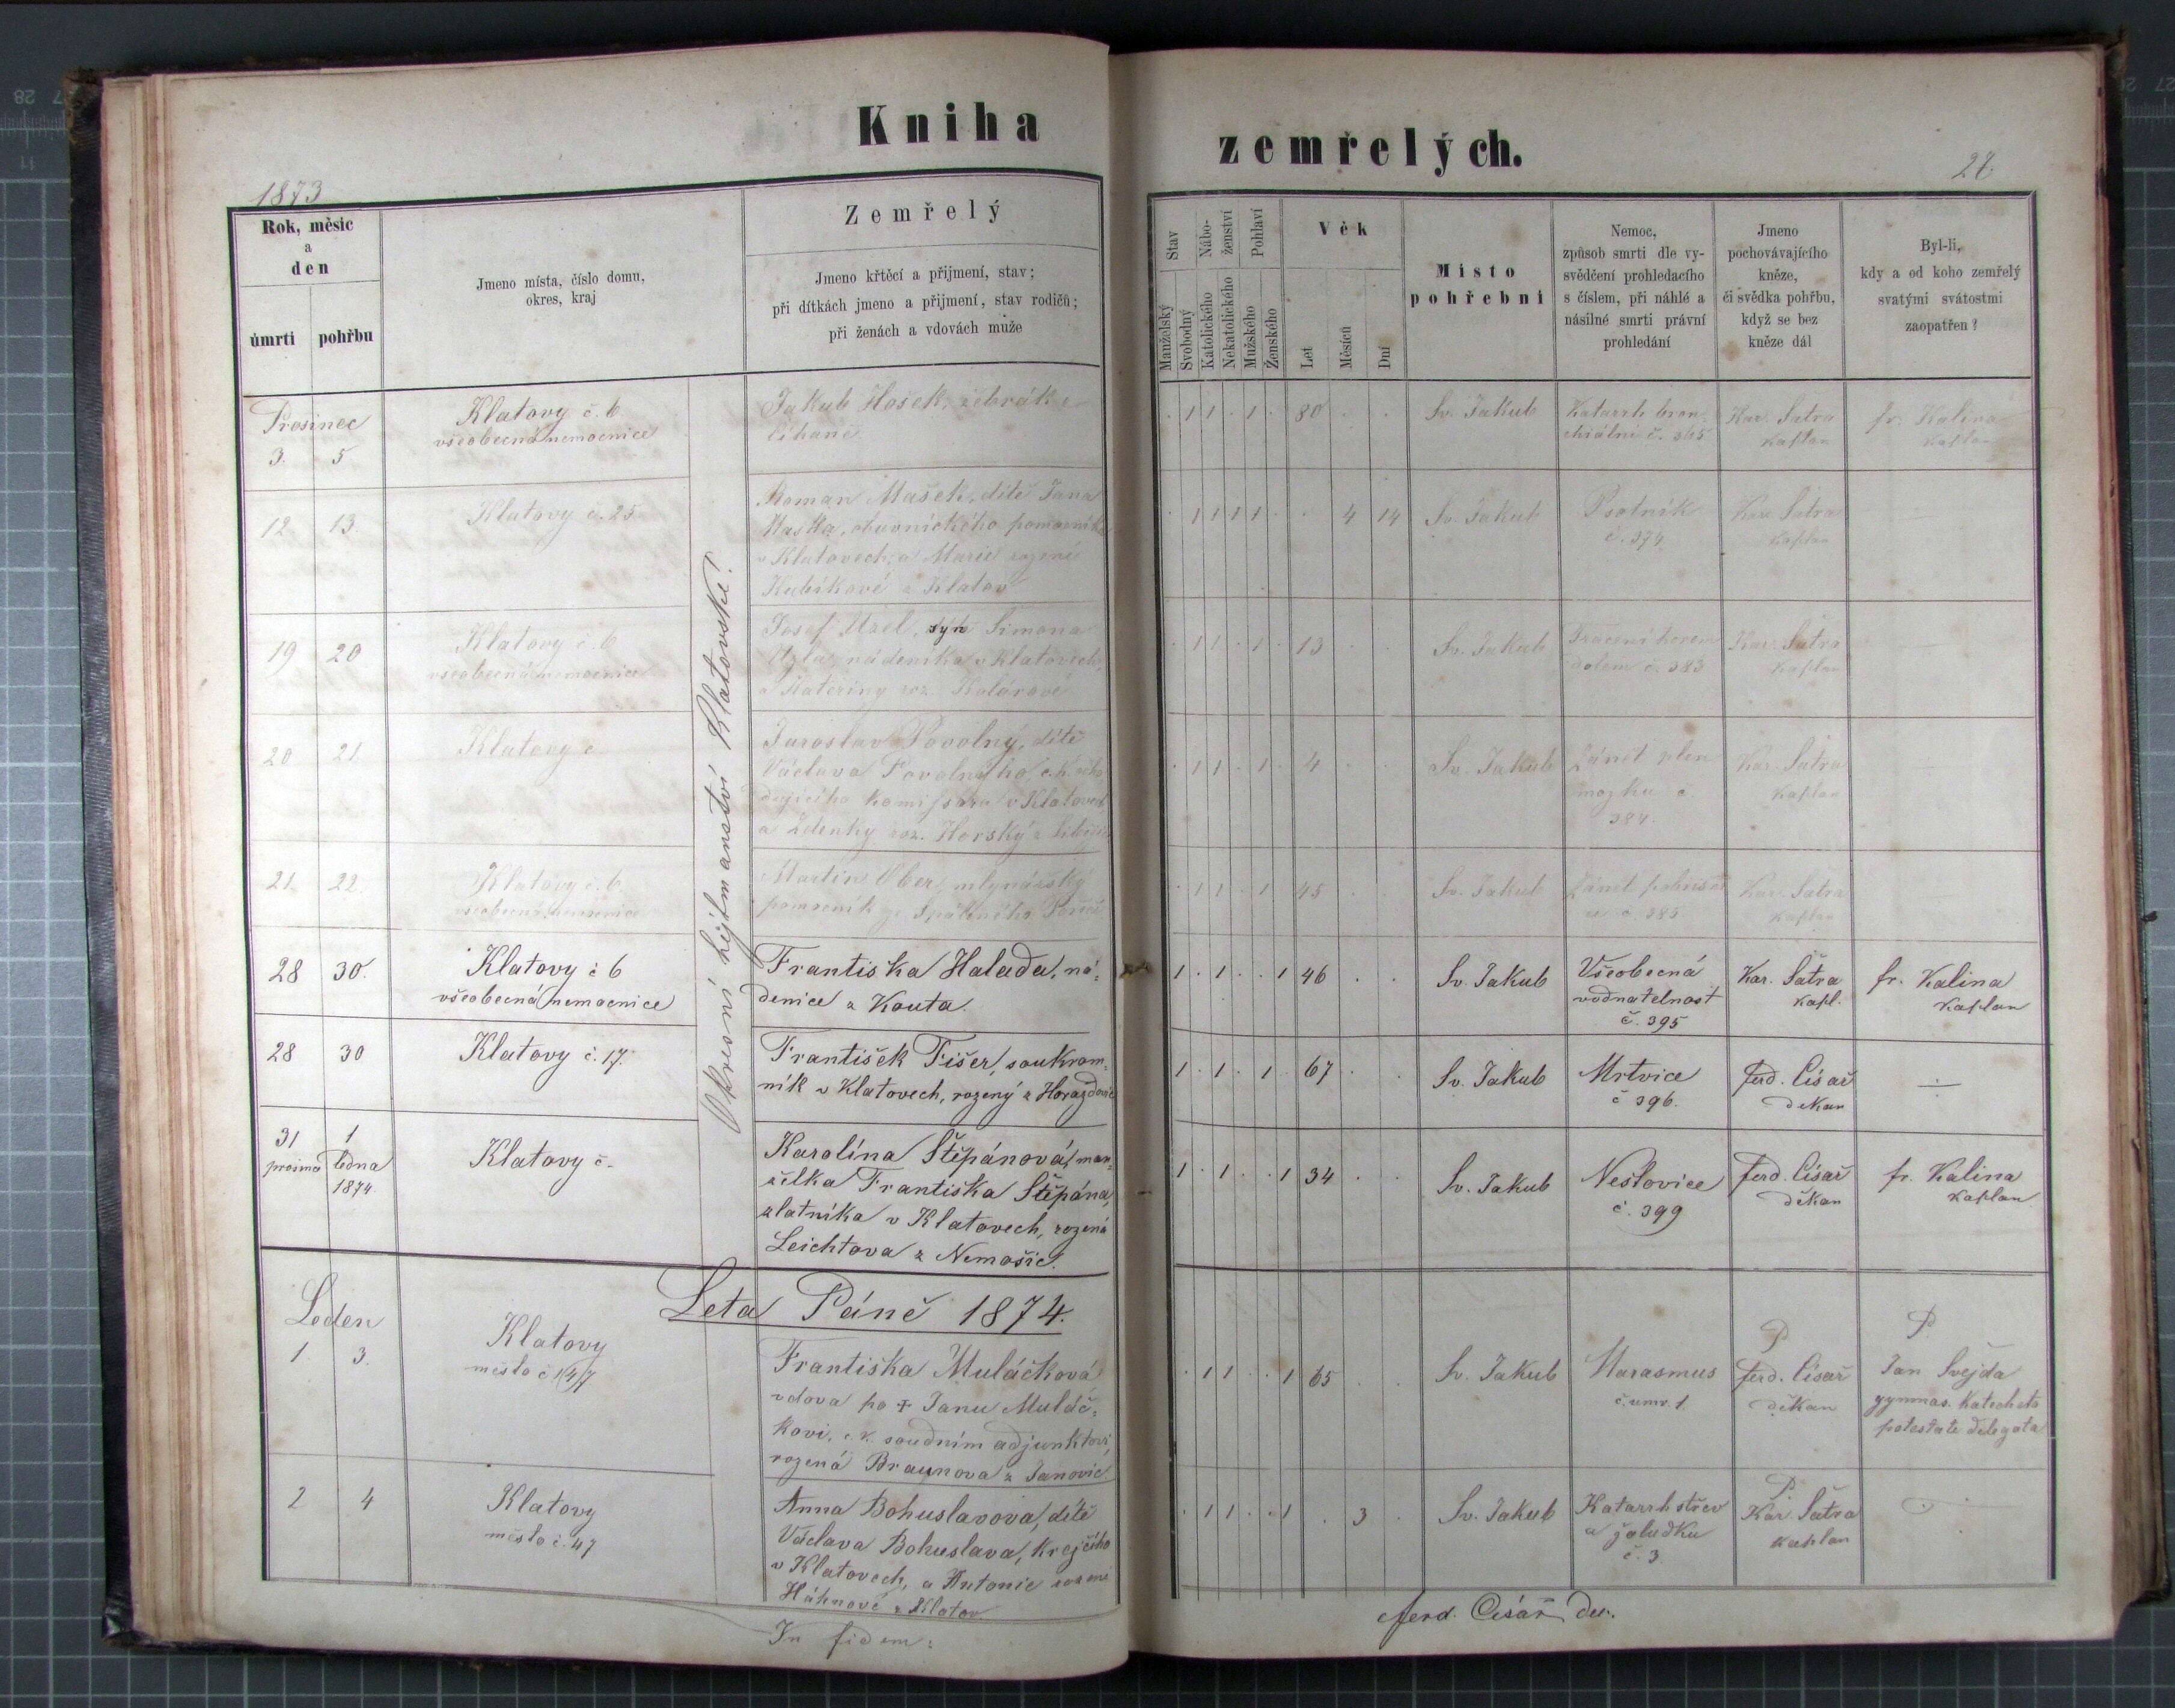 Kniha
zemřelých.
1873
28
Rok, měsíc
a
den
úmrti
pohřbu
Jmeno místa, číslo domu,
okres, kraj
Zemřelý
Jmeno křtěcí a přijmení, stav;
při dítkách jmeno a přijmení, stav rodičů;
při ženách a vdovách muže
Stav
Nábo-
ženství
Pohlaví
Věk
Manželský
Svobodný
Katolického
Nekatolického
Mužského
Ženského
Let
Měsíců
Dní
Místo
pohřební
Nemoc,
způsob smrti dle vy-
svědčení prohledacího
s číslem, při náhlé a
násilné smrti právní
prohledání
Jmeno
pochovávajícího
kněze,
či svědka pohřbu,
když se bez
kněze dál
Byl-li,
kdy a od koho zemřelý
svatými svátostmi
zaopatřen?
Okresní hejtmanství Klatovské!
Prosinec
3. 5
Klatovy č. 6
všeobecná nemocnice
Jakub Hošek, žebrák z
1 1 1 80
Sv. Jakub
Katarrh bron-
chiální č. 365
Kar. Šatra
kaplan
fr. Kalina
kaplan
12 13.
Klatovy č. 25
Roman Mašek, dítě Jana
Maška, obuvnického pomocníka
v Klatovech, a Marie rozené
Kubíkové z Klatov
1 1 1 1 4 14
Sv. Jakub
Psotník
č. 374
Kar. Šatra
kaplan
19 20
Klatovy č. 6
všeobecná nemocnice
Josef Uzel, syn Šimona
Uzla, nádeníka v Klatovech,
a Kateřiny roz. Kolárové
1 1 1 13
Sv. Jakub
dolem č. 383
Kar. Šatra
kaplan
20 21
Klatovy č
Jaroslav Povolný, dítě
Václava Povolného, c. k.
komissaře v Klatovech
a Zdenky roz. Horský z
1 1 1 4
Sv. Jakub
Zánět plen
mozku č.
384.
Kar. Šatra
kaplan
21 22.
Klatovy č. 6
všeobecná nemocnice
Martin Ober, mlynářský
pomocník ze Spáleného Poříčí
1 1 1 45
Sv. Jakub
Zánět pohrud
č. 385
Kar. Šatra
kaplan
28 30.
Klatovy č 6
všeobecná nemocnice
Františka Halada, ná-
denice z Kouta.
1 1 1 46
Sv. Jakub
Všeobecná
vodnatelnost
č. 395
Kar. Šatra
kapl.
fr. Kalina
kaplan
28 30
Klatovy č. 17.
František Fišer, soukrom-
ník v Klatovech, rozený z Horažďovic
1 1 1 67
Sv. Jakub
Mrtvice
č 396.
ferd. Císař
děkan
31 1
prosince ledna
1874.
Klatovy č.
Karolína Štěpánová, man-
želka Františka Štěpána,
zlatníka v Klatovech, rozená
Leichtova z Nemošic.
1 1 1 34
Sv. Jakub
Neštovice
č. 399
ferd. Císař
děkan
fr. Kalina
kaplan
Leta Páně 1874.
Leden
1 3.
Klatovy
město č 147
Františka Muláčková
vdova po + Janu Muláč-
kovi, c. k. soudním adjunktovi,
rozená Braunova z Janovic
1 1 1 65
Sv. Jakub
Marasmus
č. umr. 1
P
ferd. Císař
děkan
P
Jan Svejda
gymnas. katecheta
potestate delegata
2 4
Klatovy
město č. 47
Anna Bohuslavova, dítě
Václava Bohuslava, krejčího
v Klatovech, a Antonie rozené
Háhnové z Klatov
1 1 1 3
Sv. Jakub
Katarrh střev
a žaludku
č. 3.
P.
Kar. Šatra
kaplan
In fidem:
Ferd. Císař děk.